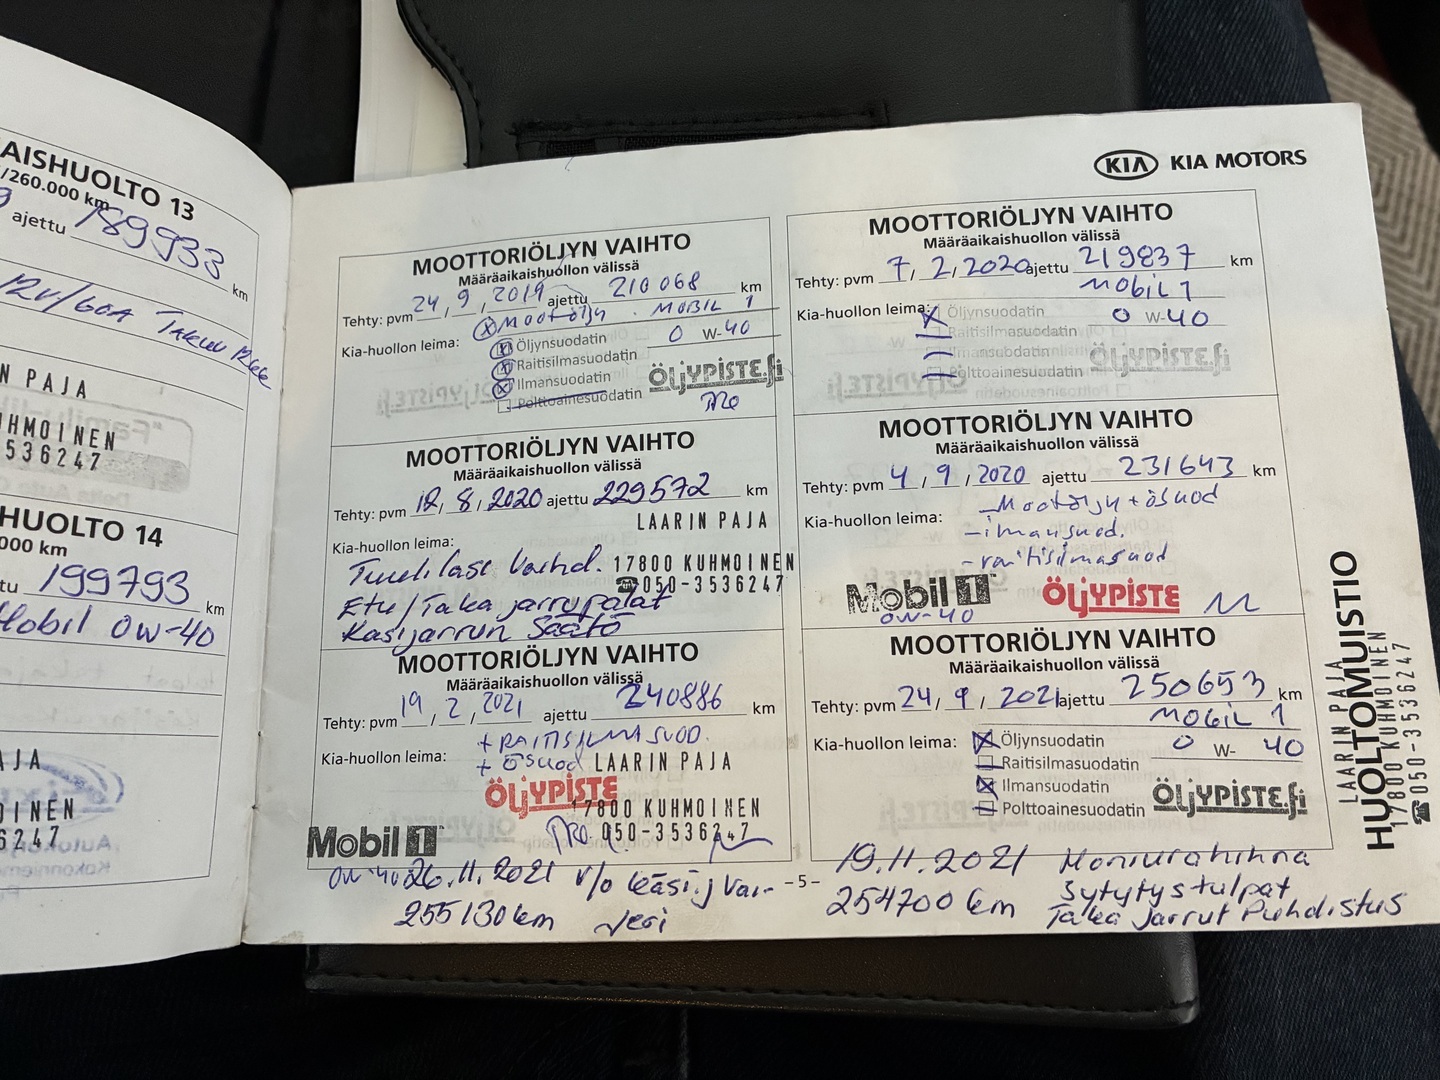 AISHUOLTO 13
/260.000 km
ajettu 189933 km
12V/60A
N PAJA
UHMOINEN
536247
HUOLTO 14
000 km
tu 199793 km
Mobil 0W-40
AJA
OINEN
6247
KIA KIA MOTORS
MOOTTORIÖLJYN VAIHTO
Määräaikaishuollon välissä
Tehty: pvm 24, 9, 2019 ajettu 210068 km
Kia-huollon leima: x Mootöljy . MOBIL 1
x Öljynsuodatin 0 W-40
x Raitisilmasuodatin
x Ilmansuodatin ÖLJYPISTE.fi
Polttoainesuodatin
MOOTTORIÖLJYN VAIHTO
Määräaikaishuollon välissä
Tehty: pvm 7, 2, 2020 ajettu 219837 km
Mobil 1
Kia-huollon leima: x Öljynsuodatin 0 W-40
Raitisilmasuodatin
Ilmansuodatin
Polttoainesuodatin ÖLJYPISTE.fi
MOOTTORIÖLJYN VAIHTO
Määräaikaishuollon välissä
Tehty: pvm 12, 8, 2020 ajettu 229572 km
LAARIN PAJA
Kia-huollon leima:
17800 KUHMOINEN
☎050-3536247
Etu/Taka jarrupalat
Käsijarrun Säätö
MOOTTORIÖLJYN VAIHTO
Määräaikaishuollon välissä
Tehty: pvm 4, 9, 2020 ajettu 231643 km
Kia-huollon leima: - Mootöljy + ösuod
- ilmansuod.
- raitisilmasuod
Mobil 1 ÖLJYPISTE
0W-40
MOOTTORIÖLJYN VAIHTO
Määräaikaishuollon välissä
Tehty: pvm 19, 2, 2021 ajettu 240886 km
+ RAITISILMASUOD.
Kia-huollon leima: + ösuod LAARIN PAJA
ÖLJYPISTE
17800 KUHMOINEN
050-3536247
Mobil 1
0W-40
MOOTTORIÖLJYN VAIHTO
Määräaikaishuollon välissä
Tehty: pvm 24, 9, 2021 ajettu 250653 km
MOBIL 1
Kia-huollon leima: x Öljynsuodatin 0 W- 40
Raitisilmasuodatin
x Ilmansuodatin
Polttoainesuodatin ÖLJYPISTE.fi
26.11.2021 v/o käsij vai-
255130 km jeri
-5-
19.11.2021 Moniurahihna
254700 km Sytytystulpat
Taka Jarrut Puhdistus
HUOLTOMUISTIO
LAARIN PAJA
17800 KUHMOINEN
☎050-3536247